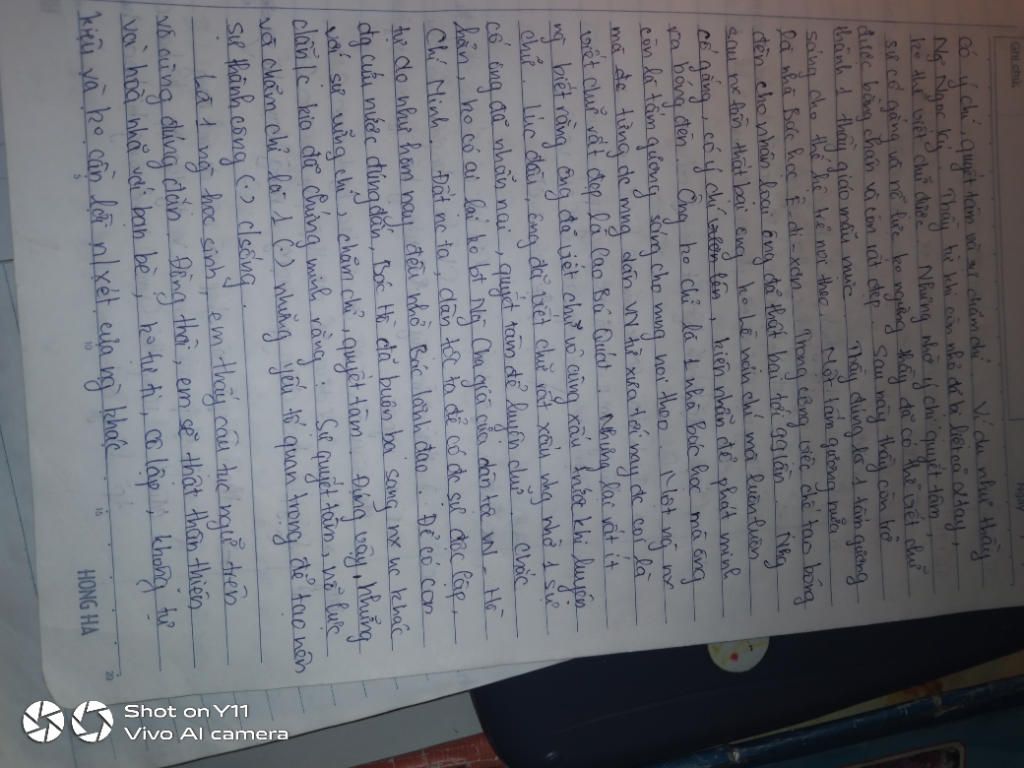 Ghi chú
Ngày
có ý chí, quyết tâm và sự chăm chỉ. Ví dụ như thầy
Ng Ngọc Ký. Thầy từ khi còn nhỏ đã bị liệt cả 2 tay,
ko thể viết chữ đc. Nhưng nhờ ý chí quyết tâm,
sự cố gắng và nỗ lực ko ngừng thầy đã có thể viết chữ
được bằng chân và còn rất đẹp. Sau này thầy còn trở
thành 1 thầy giáo mẫu mực. Thầy đúng là 1 tấm gương
sáng cho thế hệ trẻ noi theo. Một tấm gương nữa
là nhà Bác học Ê-đi-xơn. Trong công việc chế tạo bóng
đèn cho nhân loại ông đã thất bại tới lần. Nhg
sau mx lần thất bại ông ko hề nản chí mà luôn luôn
cố gắng, có ý chí, kiên nhẫn để phát minh
ra bóng đèn. Ông ko chỉ là 1 nhà bác học mà ông
còn là tấm gương sáng cho mng noi theo. Một ng nx
mà đc từng đc mng dân VN từ xưa tới nay đc coi là
viết chữ rất đẹp là Cao Bá Quát. Nhưng lại rất ít
ng biết rằng ông đã viết chữ vô cùng xấu trước khi luyện
chữ. Lúc đầu, ông đã viết chữ rất xấu nhg nhờ 1 sự
cố ông đã nhẫn nại, quyết tâm để luyện chữ. Chắc
hẳn, ko có ai lại ko bt Ng Cha già của dân tộc VN - Hồ
Chí Minh. Đất nc ta, dân tộc ta để có đc sự độc lập,
tự do như hôm nay đều nhờ Bác lãnh đạo. Để có con
đg cứu nước đúng đắn, Bác Hồ đã buôn ba sang mx nc khác
với sự vững chí, chăm chỉ, quyết tâm. Đúng vậy, những
chắc kia đã chứng minh rằng: Sự quyết tâm, nỗ lực
và chăm chỉ là 1 (.) những yếu tố quan trọng để tạo nên
sự thành công (.) c/sống.
Là 1 ng học sinh, em thấy câu tục ngữ trên
vô cùng đúng đắn. Đồng thời, em sẽ thật thân thiện
và hoà nhã với bạn bè, ko tự ti, cô lập, không tự
kiêu và ko cần lời n/xét của ng khác
5
10
15
20
HONG HA
Shot on Y11
Vivo AI camera